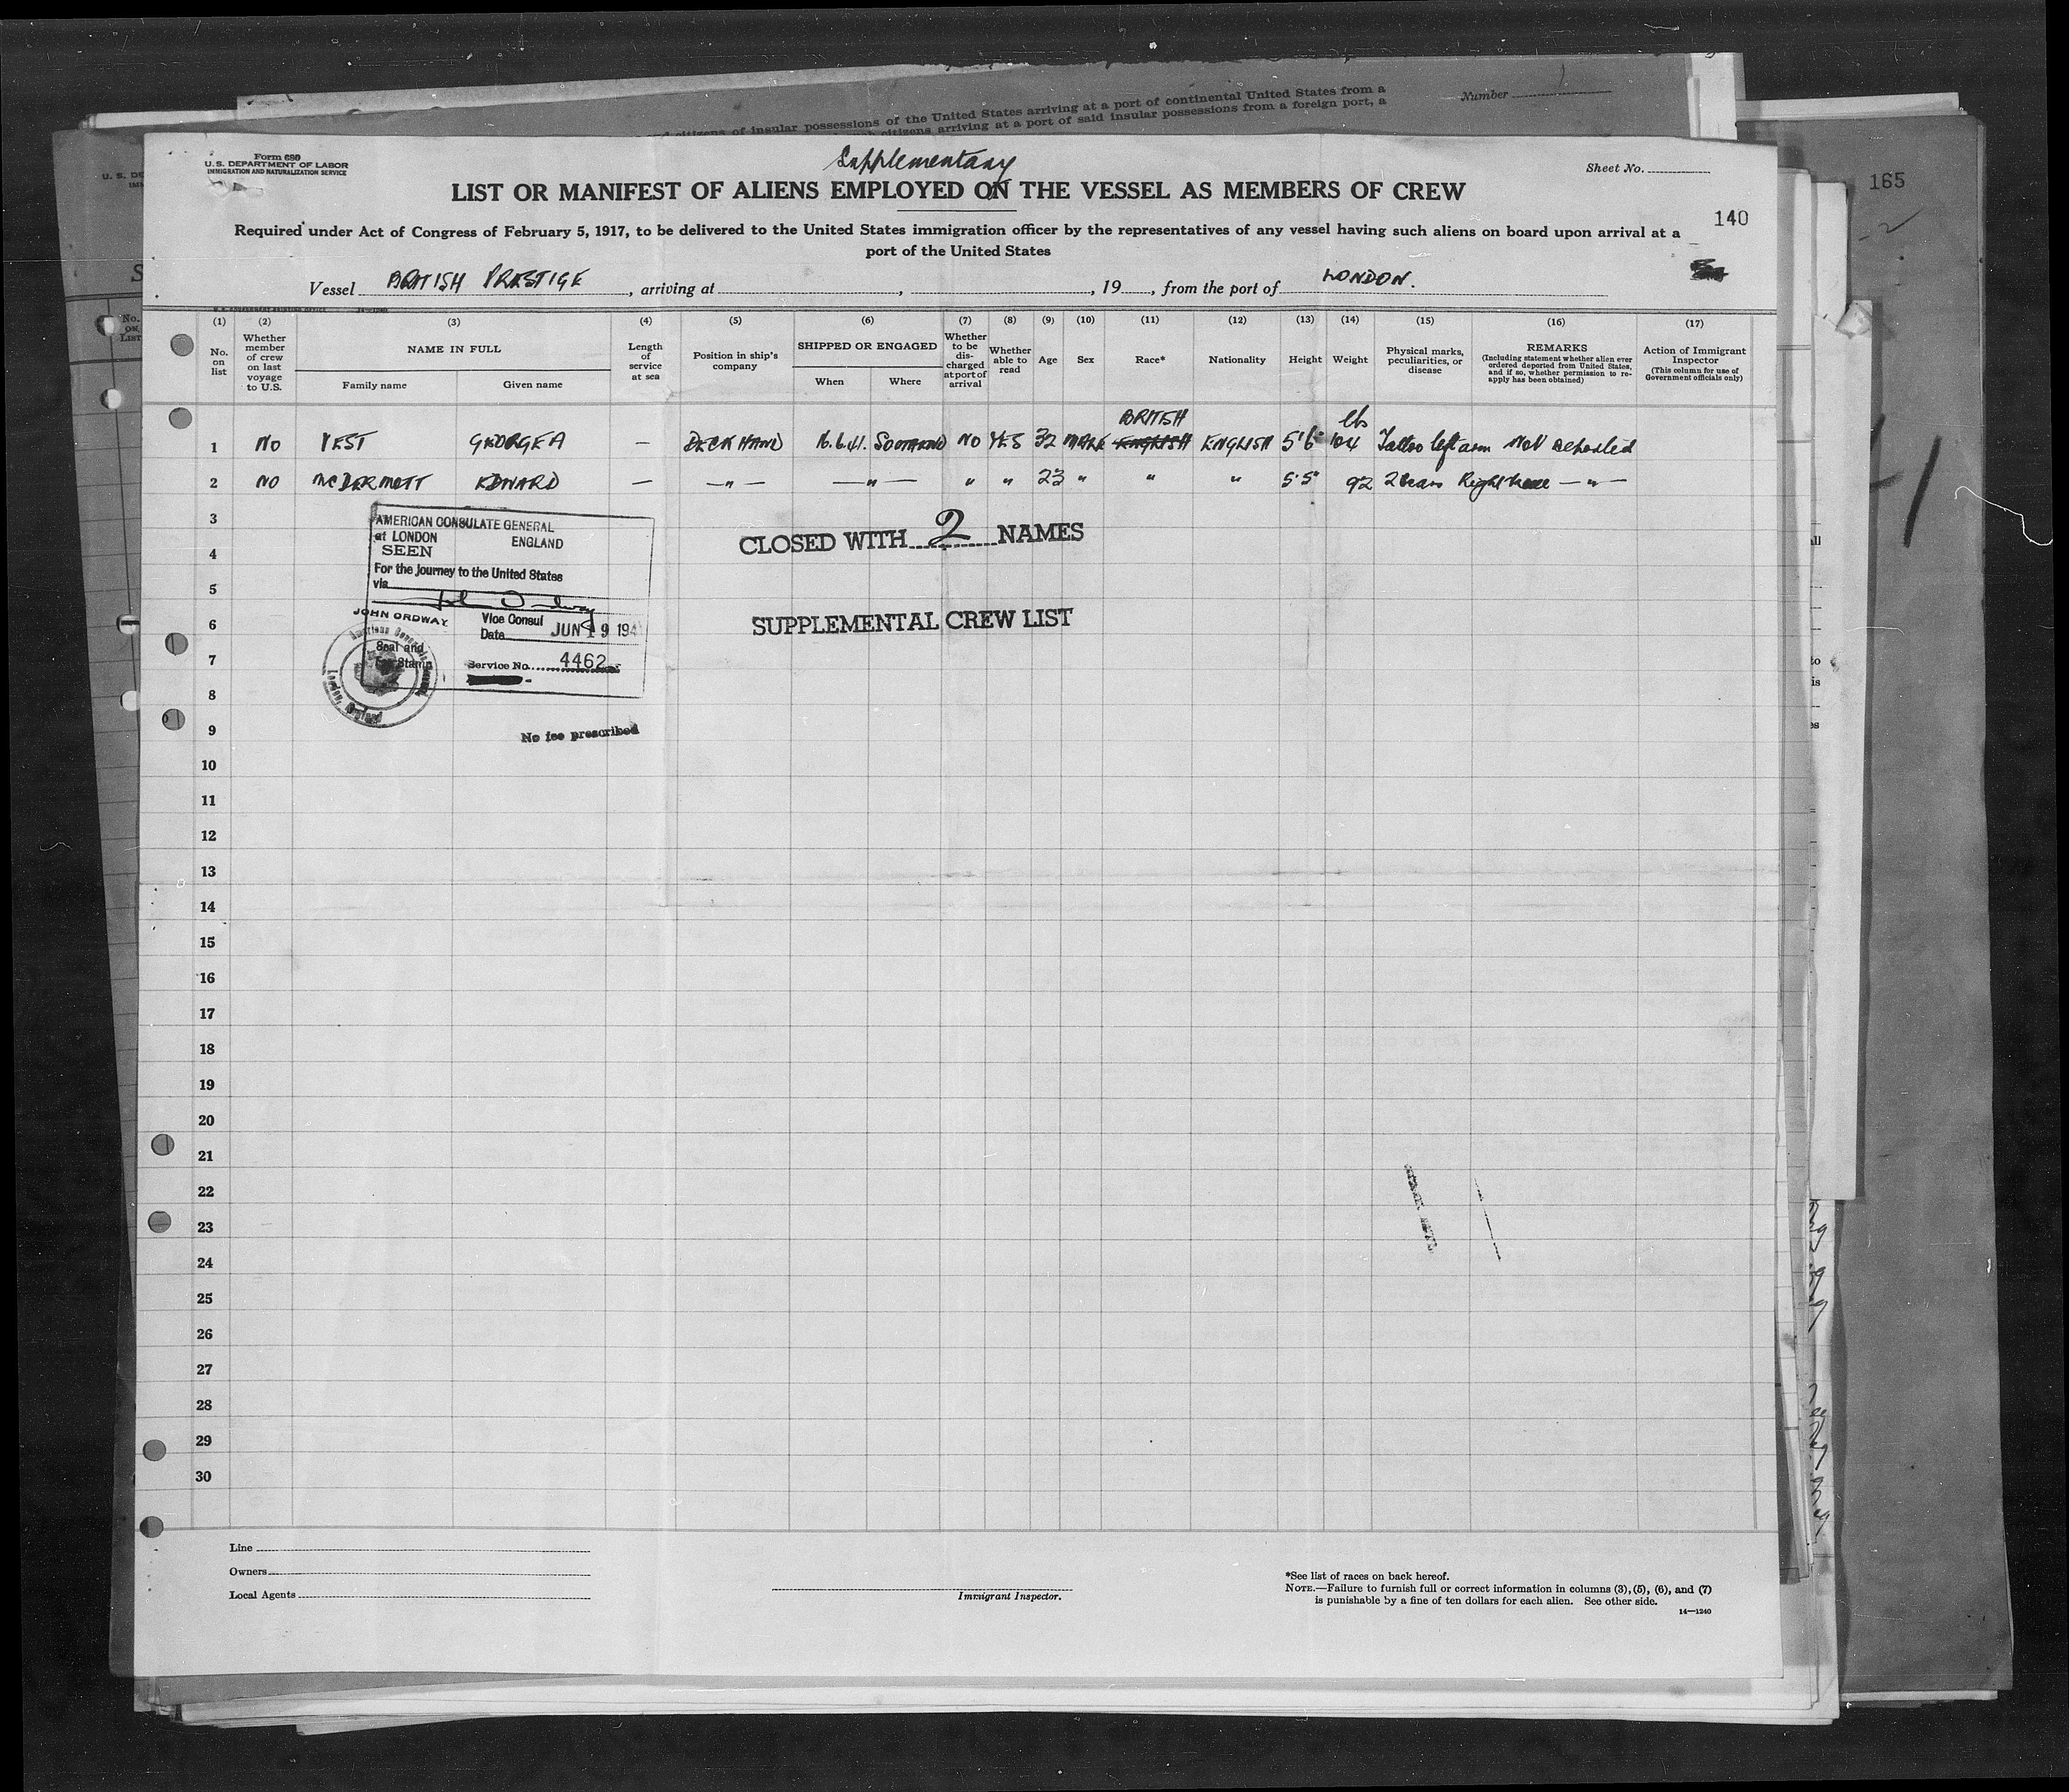 and citizens of insular possessions of the United States arriving at a port of continental United States from a
citizens arriving at a port of said insular possessions from a foreign port, a
Number
165
Form 680
U. S. DEPARTMENT OF LABOR
IMMIGRATION AND NATURALIZATION SERVICE
Supplementary
Sheet No.
LIST OR MANIFEST OF ALIENS EMPLOYED ON THE VESSEL AS MEMBERS OF CREW
140
Required under Act of Congress of February 5, 1917, to be delivered to the United States immigration officer by the representatives of any vessel having such aliens on board upon arrival at a
port of the United States
Vessel BRITISH PRESTIGE, arriving at , , 19 , from the port of LONDON.
(1) (2) (3) (4) (5) (6) (7) (8) (9) (10) (11) (12) (13) (14) (15) (16) (17)
No. on list
Whether member of crew on last voyage to U.S.
NAME IN FULL
Family name
Given name
Length of service at sea
Position in ship's company
SHIPPED OR ENGAGED
When
Where
Whether to be dis-charged at port of arrival
Whether able to read
Age
Sex
Race*
Nationality
Height
Weight
Physical marks, peculiarities, or disease
REMARKS
(Including statement whether alien ever ordered deported from United States, and if so, whether permission to re-apply has been obtained)
Action of Immigrant Inspector
(This column for use of Government officials only)
BRITISH lbs
1 NO GEORGE A — DECK HAND 16.6.41. NO YES 32 MALE ENGLISH ENGLISH 5'6" 104 Tattoo left arm Not deported
2 NO McDERMOTT EDWARD — —"— —"— " " 23 " " " 5'5" 92 2 Scars Right —"—
3
4
5
6
7
8
9
10
11
12
13
14
15
16
17
18
19
20
21
22
23
24
25
26
27
28
29
30
AMERICAN CONSULATE GENERAL
at LONDON ENGLAND
SEEN
For the journey to the United States
via
John Ordway
JOHN ORDWAY Vice Consul
Date JUN 19 194
Seal and
Fee Stamp
Service No. 4462
London, England
No fee prescribed
CLOSED WITH 2 NAMES
SUPPLEMENTAL CREW LIST
Line
Owners
Local Agents
Immigrant Inspector.
*See list of races on back hereof.
NOTE.—Failure to furnish full or correct information in columns (3), (5), (6), and (7)
is punishable by a fine of ten dollars for each alien. See other side.
14—1240